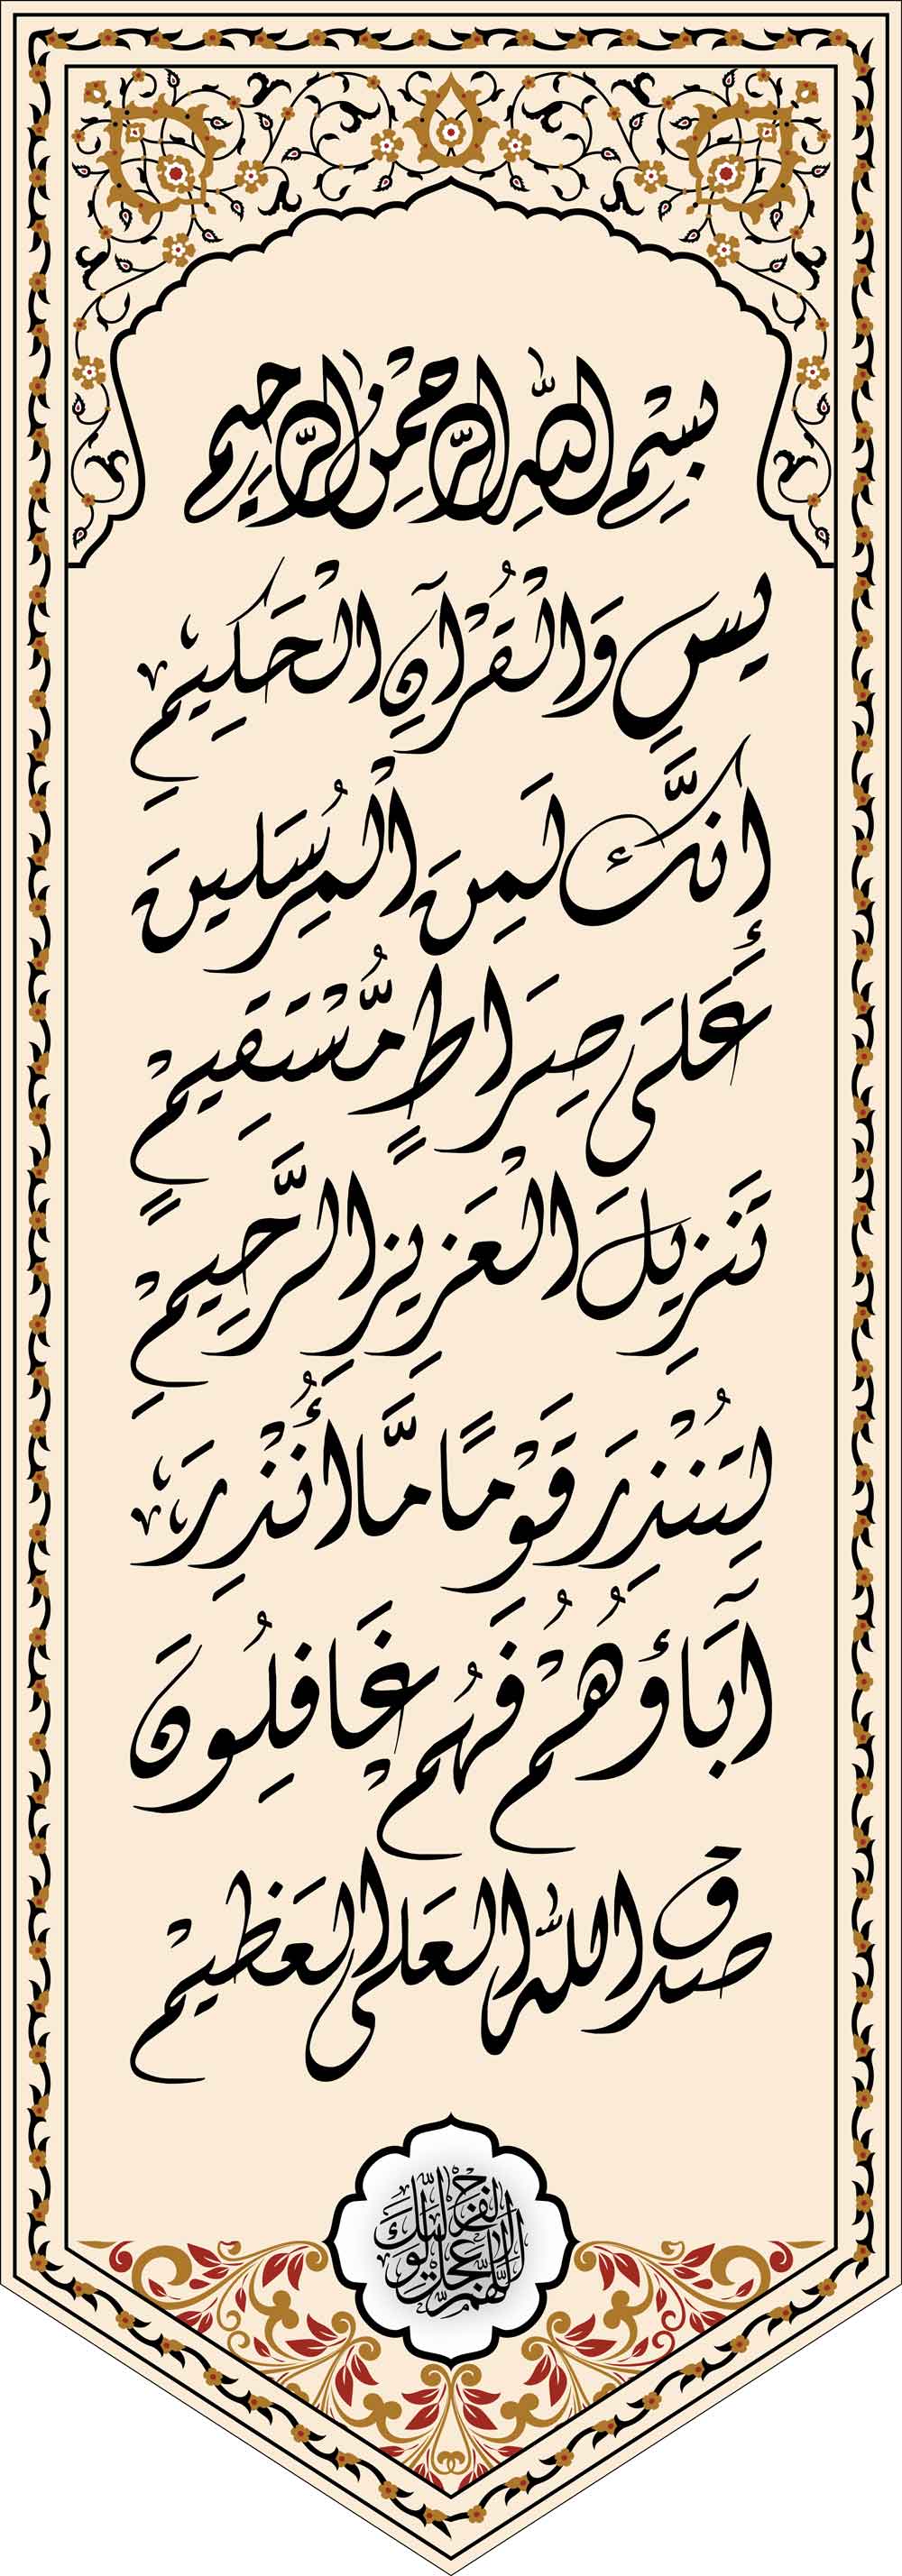 بِسْمِ اللّٰهِ الرَّحْمٰنِ الرَّحِيمِ
يس وَالْقُرْآنِ الْحَكِيمِ
إِنَّكَ لَمِنَ الْمُرْسَلِينَ
عَلَى صِرَاطٍ مُّسْتَقِيمٍ
تَنْزِيلَ الْعَزِيزِ الرَّحِيمِ
لِتُنْذِرَ قَوْمًا مَّا أُنْذِرَ
آبَاؤُهُمْ فَهُمْ غَافِلُونَ
صدق اللّٰه العَلى العَظيمْ
اللّٰهم عجل لوليك الفرج